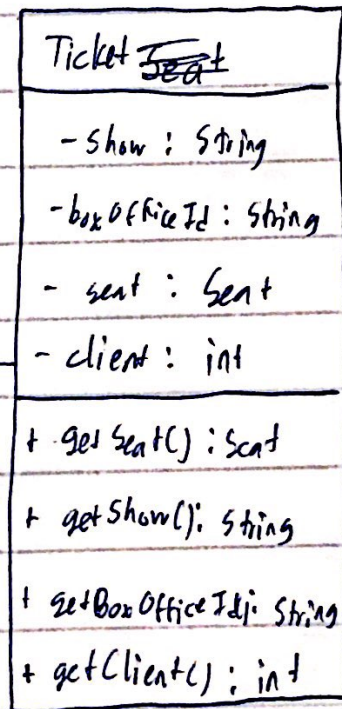 Ticket Seat
- show : String
- boxOfficeId : String
- seat : Seat
- client : int
+ getSeat() : Seat
+ getShow() : String
+ getBoxOfficeId): String
+ getClient() : int